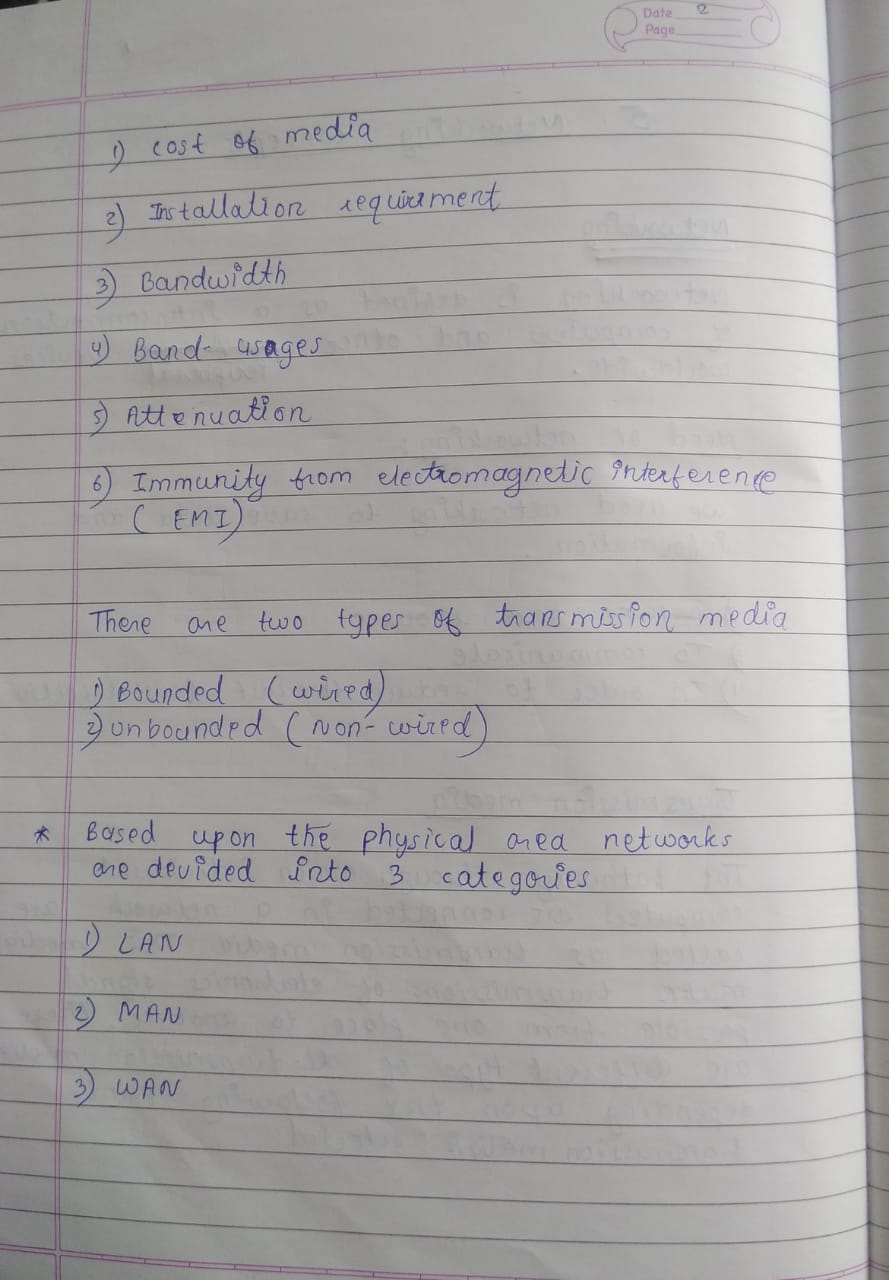 Date 2
Page
1) cost of media
2) Installation requirment
3) Bandwidth
4) Band-usages
5) Attenuation
6) Immunity from electromagnetic interference
( EMI )
There are two types of transmission media
1) Bounded (wired)
2) unbounded (Non-wired)
* Based upon the physical area networks
are devided into 3 categories
1) LAN
2) MAN
3) WAN